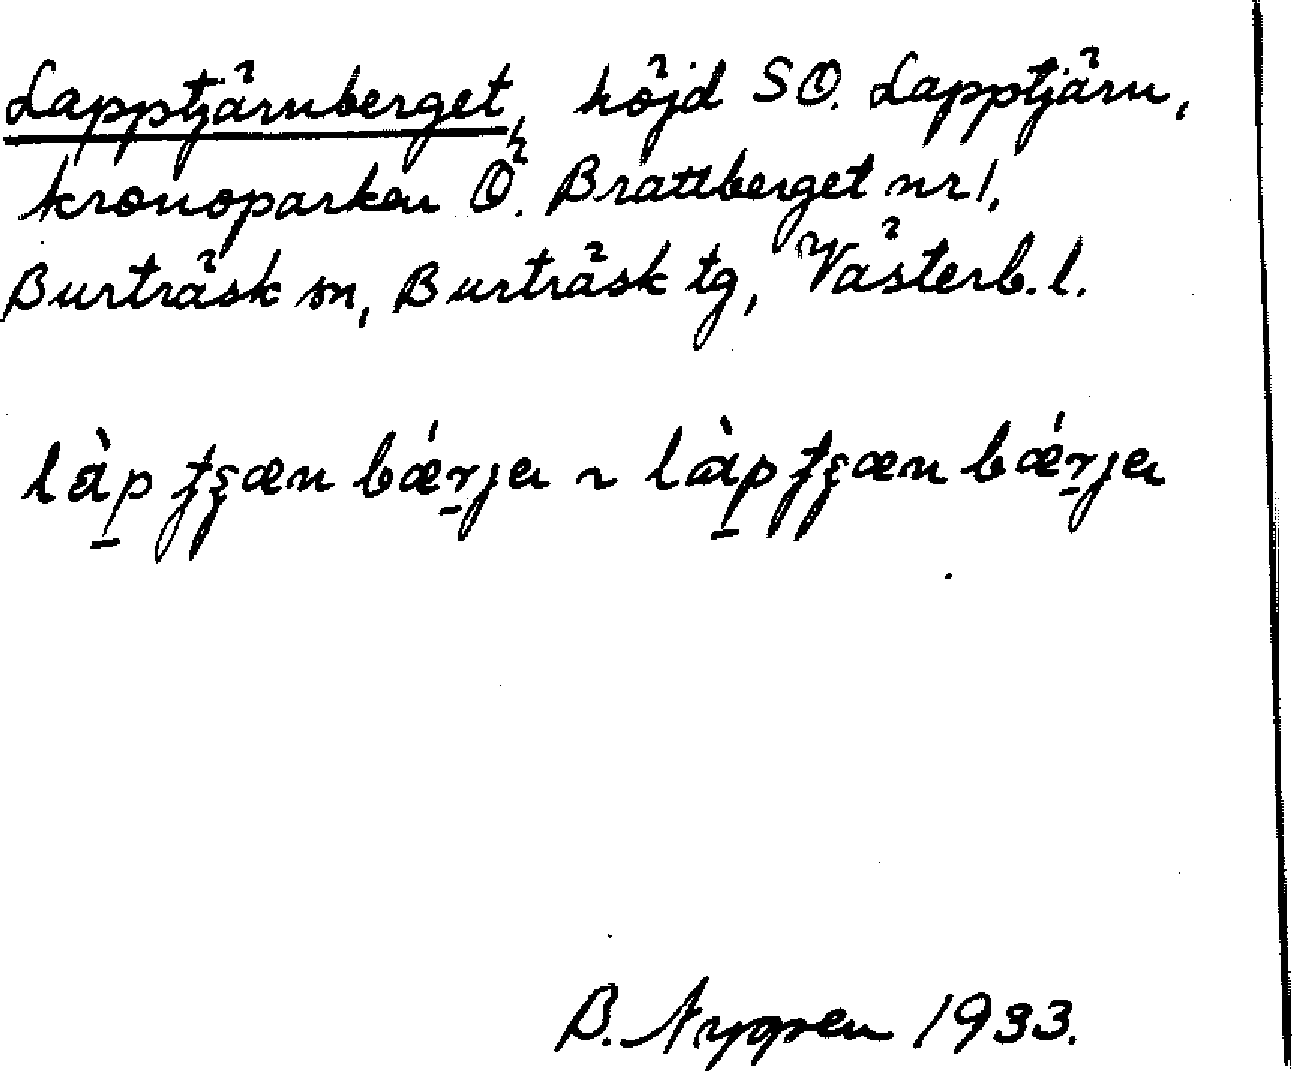 Lapptjärnberget, höjd SO. Lapptjärn,
kronoparken Ö. Brattberget nr 1,
Burträsk sn, Burträsk tg, Västerb. l.
làp̱ tʂæn bǽṟja ~ làp̱ tʂæn bǽṟja
B. Nygren 1933.